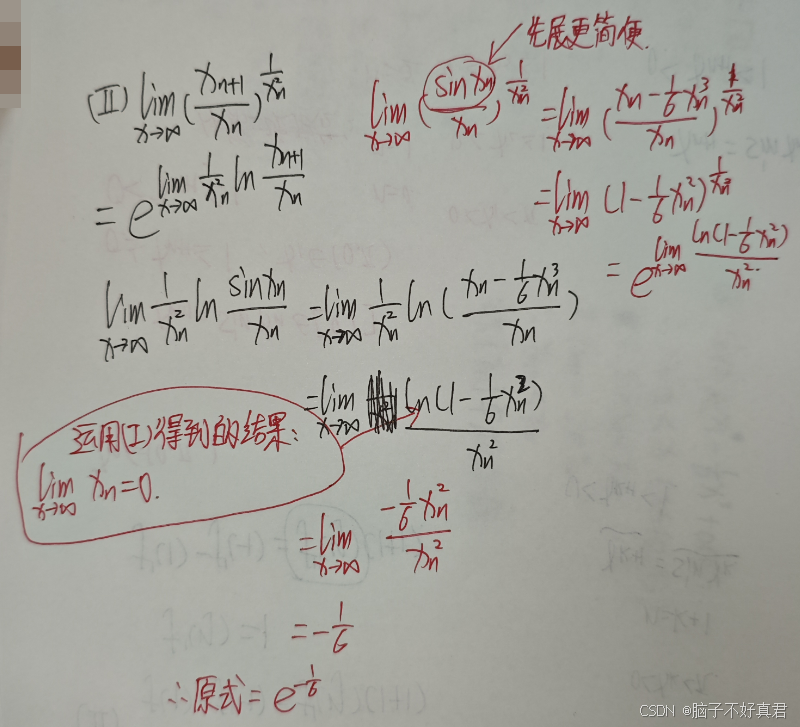 先展更简便.
(II) lim x→∞ (xn+1/xn)^(1/xn²)
lim x→∞ (sin xn/xn)^(1/xn²) = lim x→∞ ((xn - 1/6 xn³)/xn)^(1/xn²)
= e^(lim x→∞ 1/xn² ln xn+1/xn)
= lim x→∞ (1 - 1/6 xn²)^(1/xn²)
= e^(lim x→∞ ln(1 - 1/6 xn²)/xn²)
lim x→∞ 1/xn² ln sin xn/xn = lim x→∞ 1/xn² ln((xn - 1/6 xn³)/xn)
= lim x→∞ ln(1 - 1/6 xn²)/xn²
运用(I)得到的结果:
lim x→∞ xn = 0.
= lim x→∞ (-1/6 xn²)/xn²
= -1/6
∴原式 = e^(-1/6)
CSDN @脑子不好真君